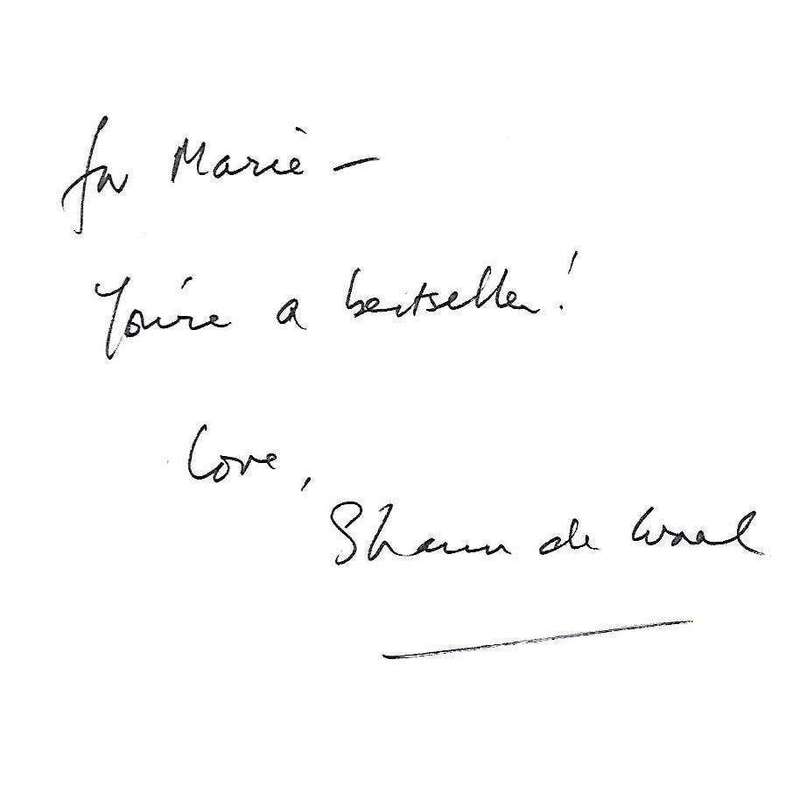 for Marie —
You're a bestseller!
Love,
Shaun de Waal